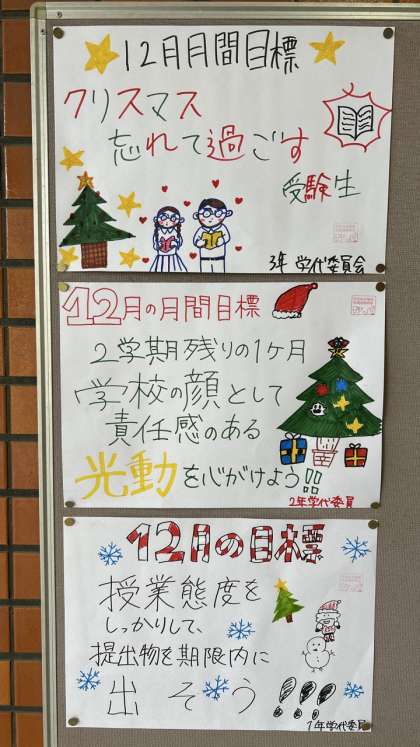 12月月間目標
クリスマス
忘れて過ごす
受験生
3年 学代委員会
12月の月間目標
2学期残りの1ヶ月
学校の顔として
責任感のある
光動を心がけよう!!
2年学代委員
12月の目標
授業態度を
しっかりして、
提出物を期限内に
出そう!!!
1年学代委員